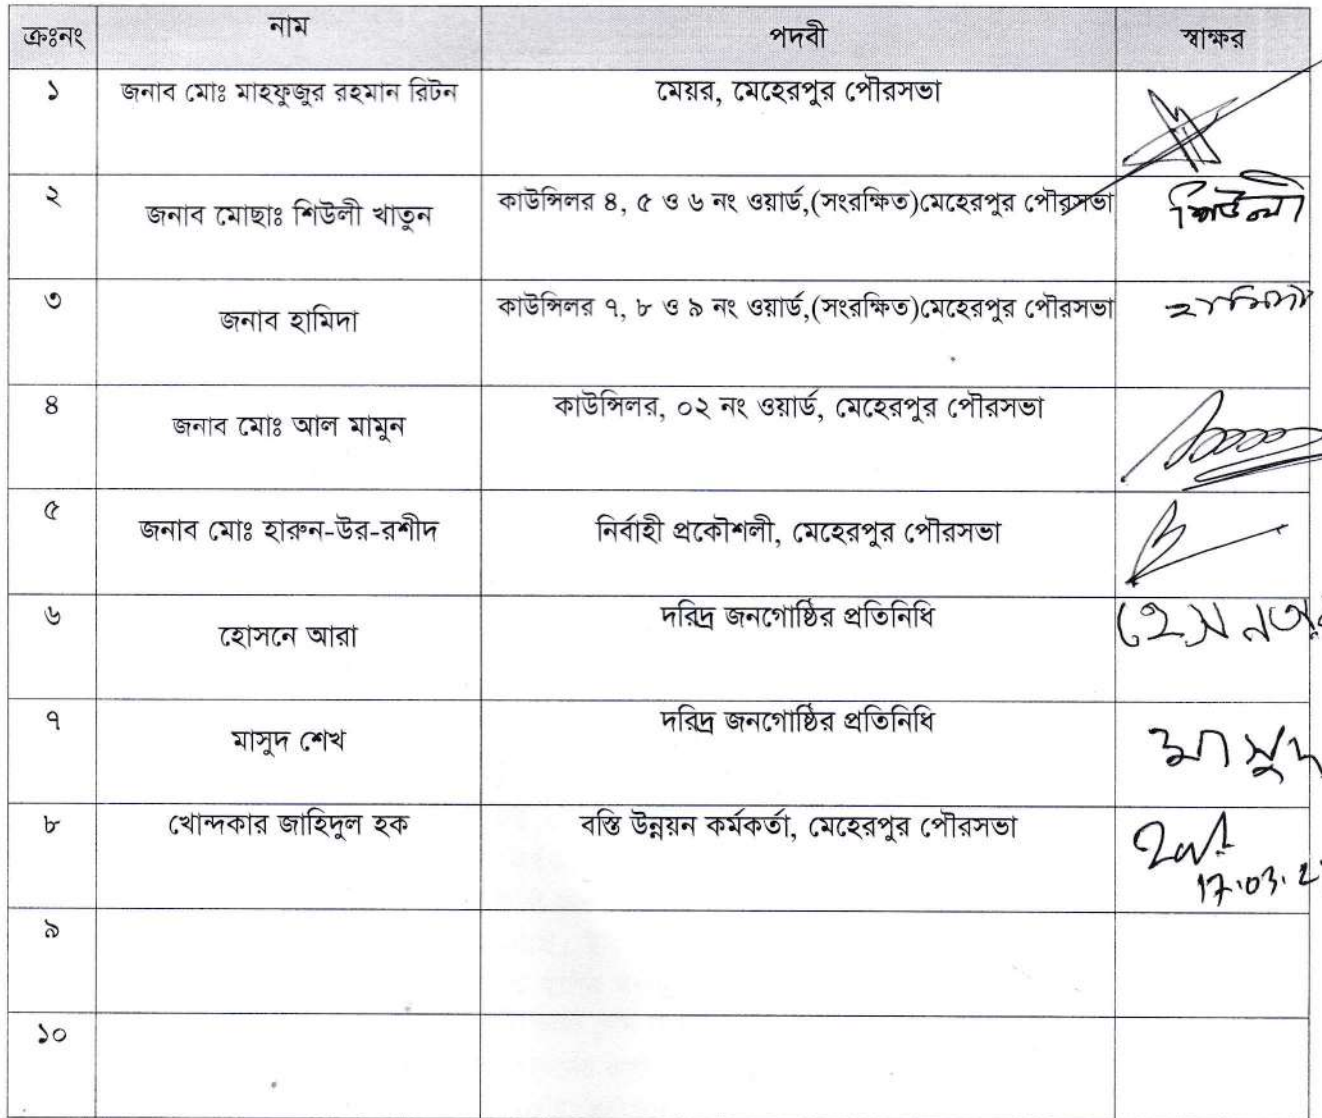 ক্রঃনং নাম পদবী স্বাক্ষর
১ জনাব মোঃ মাহফুজুর রহমান রিটন মেয়র, মেহেরপুর পৌরসভা
২ জনাব মোছাঃ শিউলী খাতুন কাউন্সিলর ৪, ৫ ও ৬ নং ওয়ার্ড,(সংরক্ষিত)মেহেরপুর পৌরসভা শিউলী
৩ জনাব হামিদা কাউন্সিলর ৭, ৮ ও ৯ নং ওয়ার্ড,(সংরক্ষিত)মেহেরপুর পৌরসভা হামিদা
৪ জনাব মোঃ আল মামুন কাউন্সিলর, ০২ নং ওয়ার্ড, মেহেরপুর পৌরসভা
৫ জনাব মোঃ হারুন-উর-রশীদ নির্বাহী প্রকৌশলী, মেহেরপুর পৌরসভা
৬ হোসনে আরা দরিদ্র জনগোষ্ঠির প্রতিনিধি
৭ মাসুদ শেখ দরিদ্র জনগোষ্ঠির প্রতিনিধি মাসুদ
৮ খোন্দকার জাহিদুল হক বস্তি উন্নয়ন কর্মকর্তা, মেহেরপুর পৌরসভা
17.03.2
৯
১০